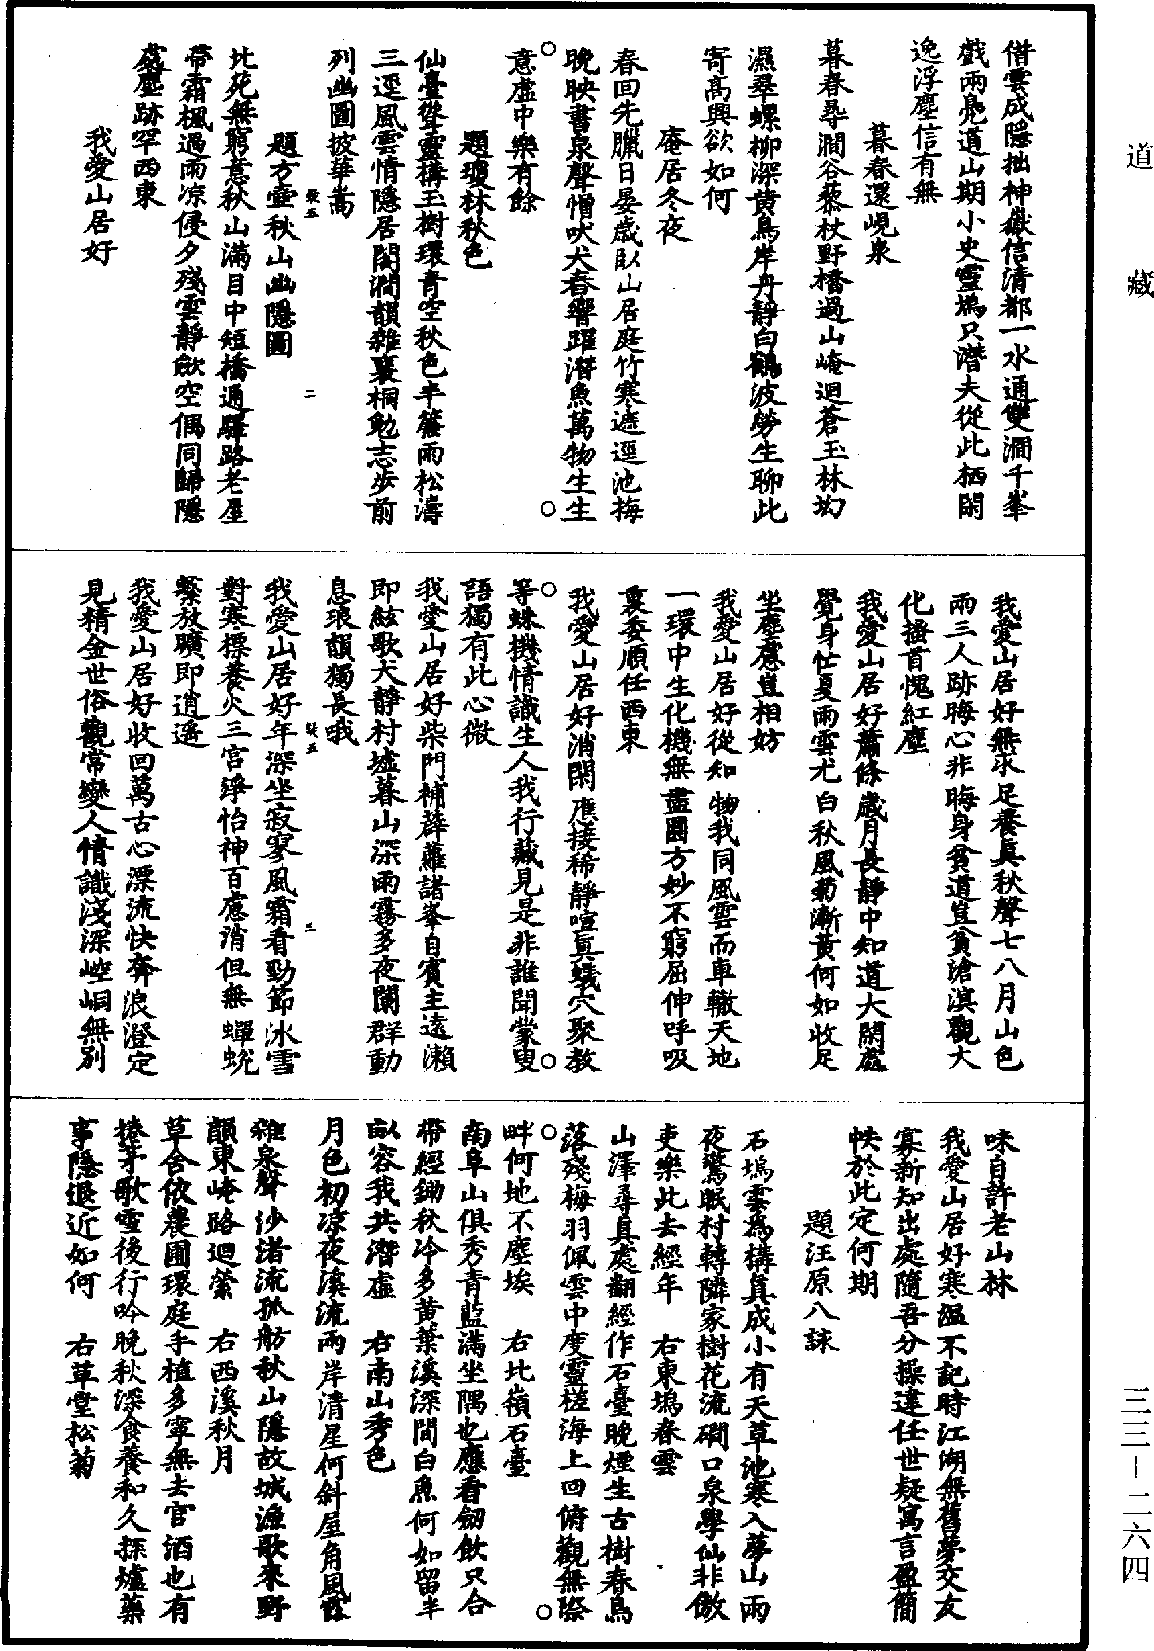 道藏
借雲成隱拙神嶽信清都一水通雙澗千峯
戲兩鳧道山期小史靈塢只潛夫從此栖閑
逸浮塵信有無
暮春還峴泉
暮春尋澗谷藜杖野橋過山崦迴蒼玉林坳
濕翠螺柳深黃鳥岸丹靜白鷗波勞生聊此
寄高興欲如何
庵居冬夜
春回先臘日晏歲臥山居庭竹寒遮逕池梅
晚映書泉聲憎吠犬舂響躍潛魚萬物生生
意虛中樂有餘
題瓊林秋色
仙臺聳靈構玉樹環青空秋色半簾雨松濤
三逕風雲情隱居閣澗韻雜襄桐勉志步前
列幽圖披華嵩
題方壺秋山幽隱圖
比死無窮意秋山滿目中短橋通驛路老屋
帶霜楓過雨凉侵夕殘雲靜斂空偶同歸隱
處塵跡罕西東
我愛山居好
二
我愛山居好無求足養真秋聲七八月山色
兩三人跡晦心非晦身貧道豈貧滄溟觀大
化搔首愧紅塵
我愛山居好蕭條歲月長靜中知道大閑處
覺身忙夏雨雲尤白秋風菊漸黃何如收足
坐塵慮豈相妨
我愛山居好從知物我同風雲而車轍天地
一環中生化機無盡圓方妙不窮屈伸呼吸
裏委順任西東
我愛山居好消閑應接稀靜喧真蟻穴聚教
等蛛機情識生人我行藏見是非誰聞蒙叟
語獨有此心微
我愛山居好柴門補薜蘿諸峯自賓主遠瀨
即絃歌犬靜村墟暮山深雨霧多夜闌群動
息琅韻獨長哦
我愛山居好年深坐寂寥風霜看勁節冰雪
對寒標養火三宮淨怡神百慮消但無蟬蛻
繫放曠即逍遙
我愛山居好收回萬古心漂流快奔浪澄定
見精金世俗觀常變人情識淺深崆峒無別
三
味自許老山林
我愛山居好寒溫不記時江湖無舊夢交友
寡新知出處隨吾分操違任世疑寓言盈簡
帙於此定何期
題汪原八詠
石塢雲為構真成小有天草池寒入夢山雨
夜驚眠村轉隣家樹花流磵口泉學仙非傲
吏樂此去經年　右東塢春雲
山澤尋真處翻經作石臺晚煙生古樹春鳥
落殘梅羽佩雲中度靈槎海上回俯觀無際
畔何地不塵埃　右比嶺石臺
南阜山俱秀青藍滿坐隅也應看劒飲只合
帶經鋤秋冷多黃葉溪深間白魚何如留半
畝容我共潛虛　右南山秀色
月色初凉夜溪流兩岸清星何斜屋角風露
雜泉聲沙渚流孤舫秋山隱故城漁歌來野
韻東崦路迴縈　右西溪秋月
草舍依農圃環庭手植多寧無去官酒也有
捲茅歌雪後行吟晚秋深食養和久探爐藥
事隱退近如何　右草堂松菊
三三—二六四